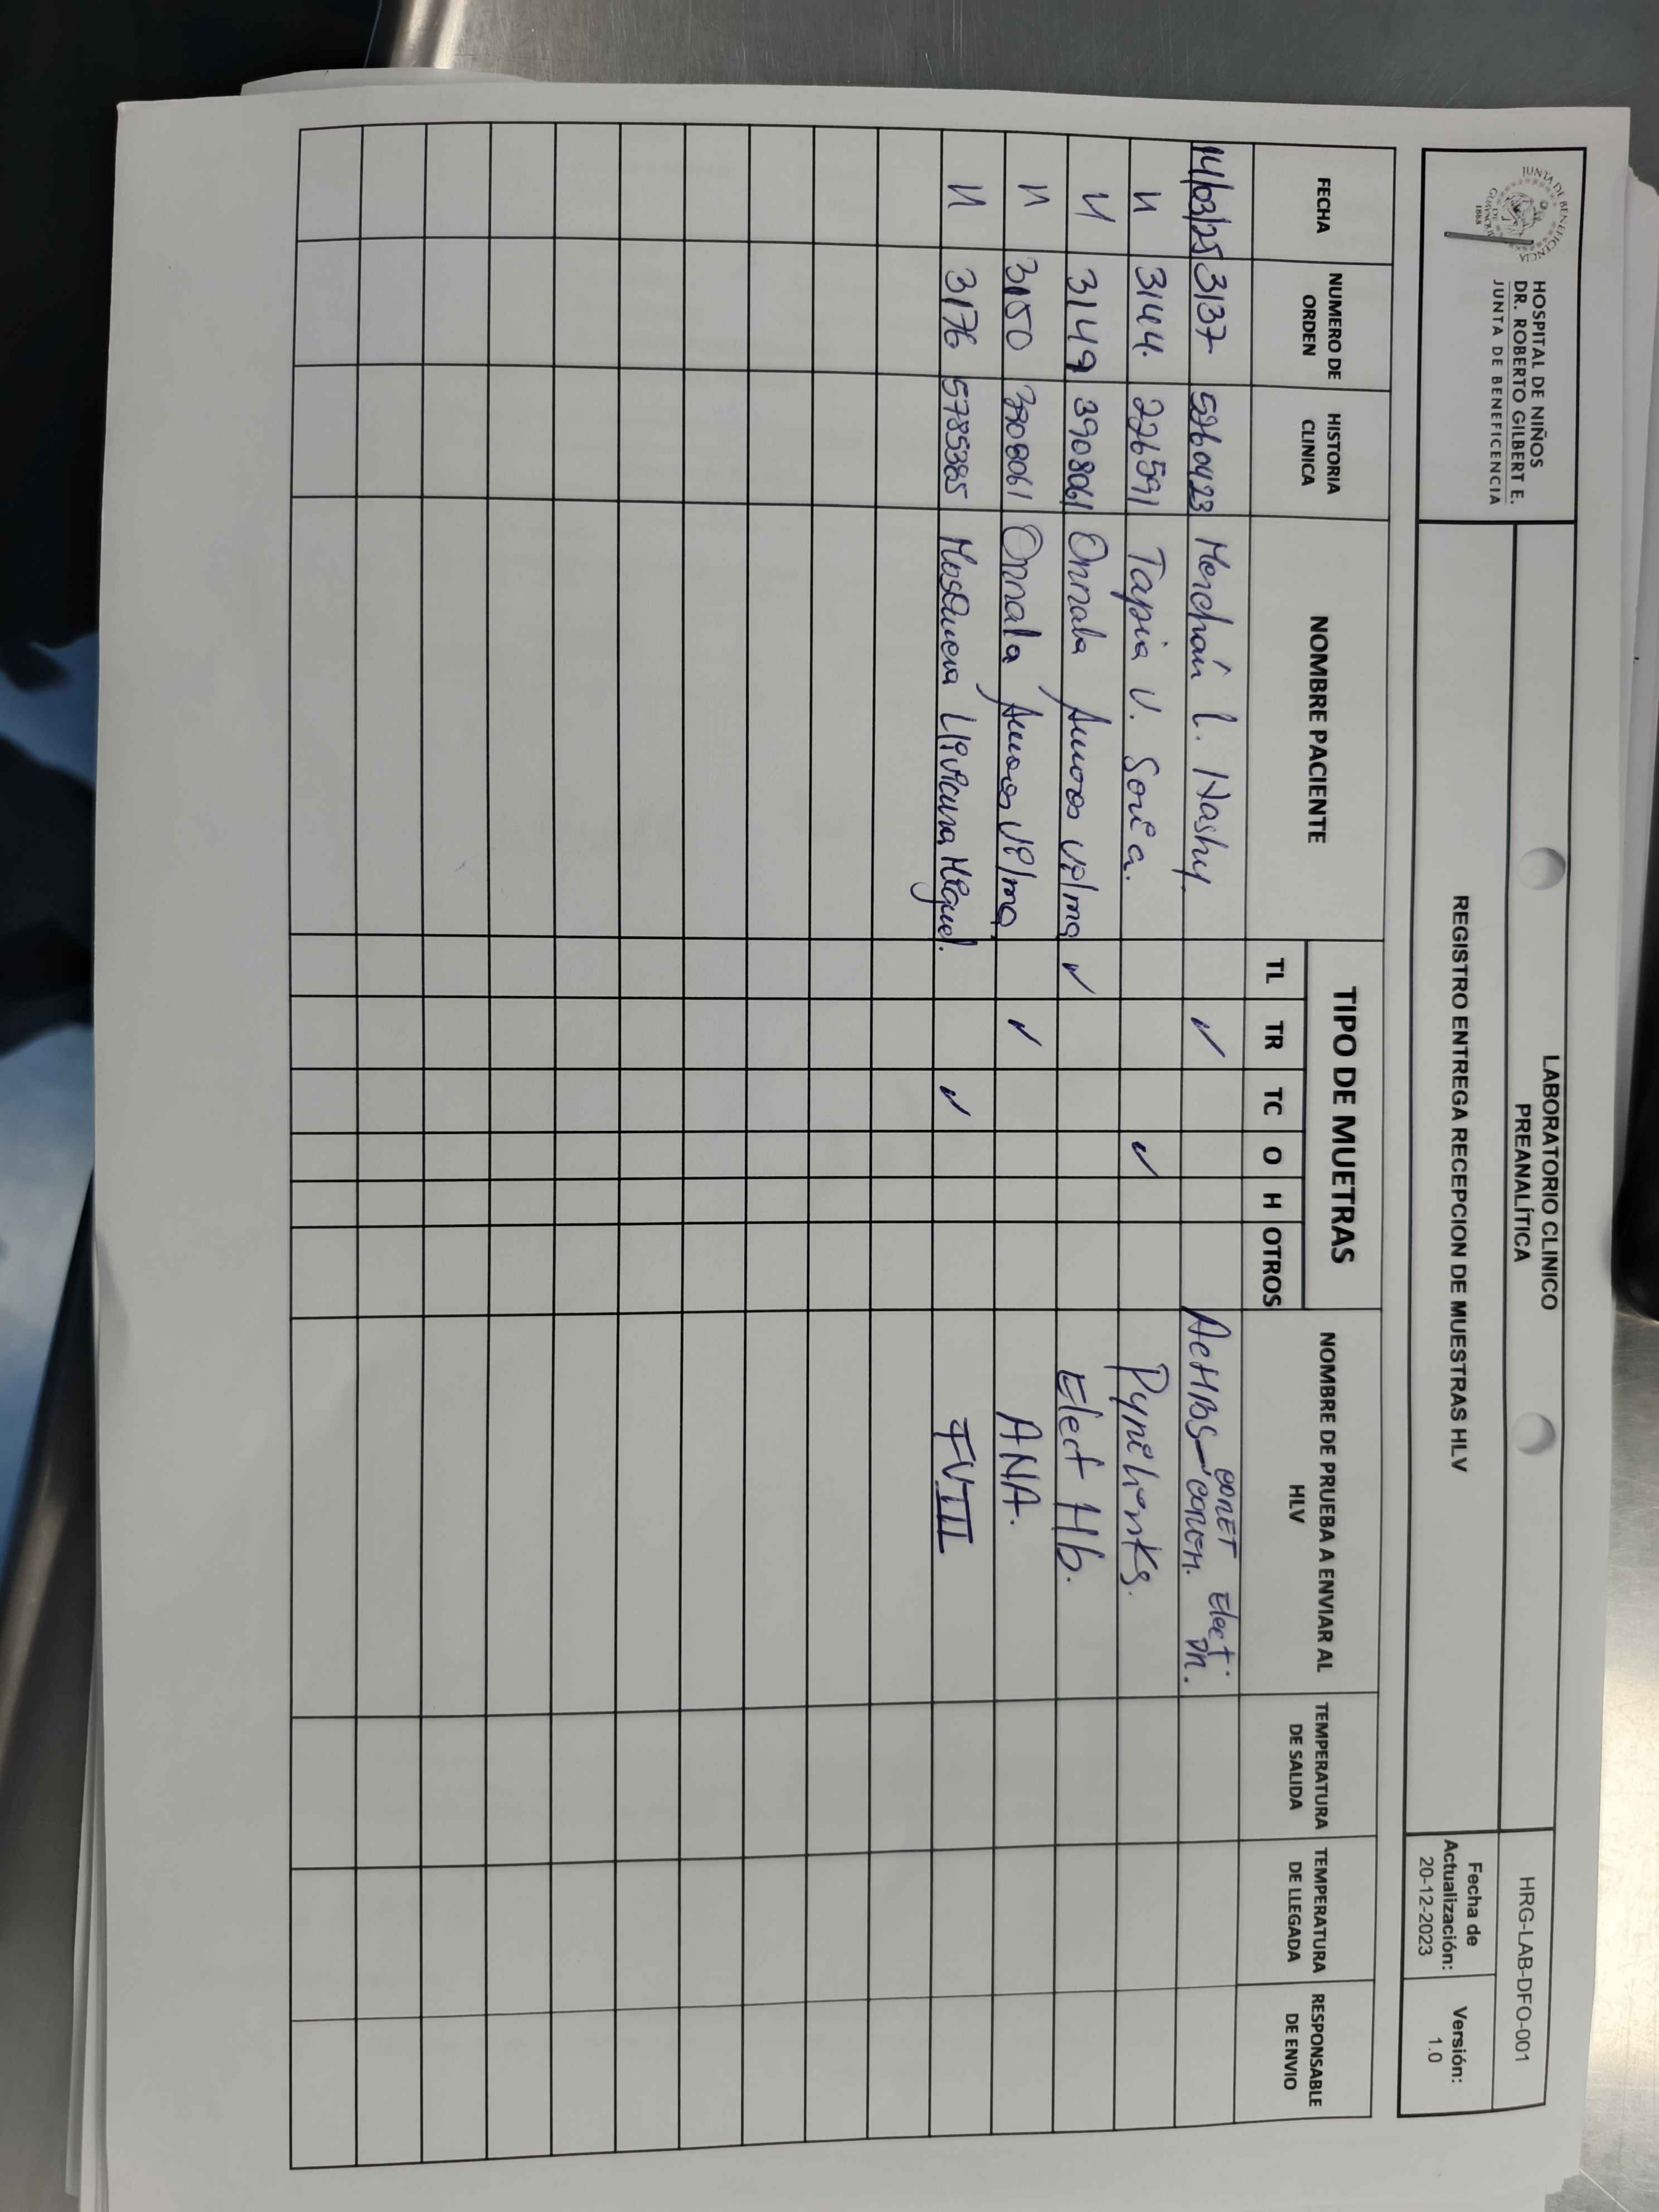 JUNTA DE BENEFICENCIA DE GUAYAQUIL
1888
HOSPITAL DE NIÑOS
DR. ROBERTO GILBERT E.
JUNTA DE BENEFICENCIA
LABORATORIO CLINICO
PREANALÍTICA
HRG-LAB-DFO-001
REGISTRO ENTREGA RECEPCION DE MUESTRAS HLV
Fecha de Actualización: 20-12-2023
Versión: 1.0
FECHA NUMERO DE ORDEN HISTORIA CLINICA NOMBRE PACIENTE TIPO DE MUETRAS NOMBRE DE PRUEBA A ENVIAR AL HLV TEMPERATURA DE SALIDA TEMPERATURA DE LLEGADA RESPONSABLE DE ENVIO
TL TR TC O H OTROS
14/03/25 3137 5260423 Merchán L. Nashy. ✓ AcHBS Elect
" 3144. 226591 Tapia V. ✓
" 3149 3908061 Onnala ✓ Elect Hb.
" 3150 3908061 Onnala ✓ ANA.
" 3176 5785385 Miguel. ✓ FVIII